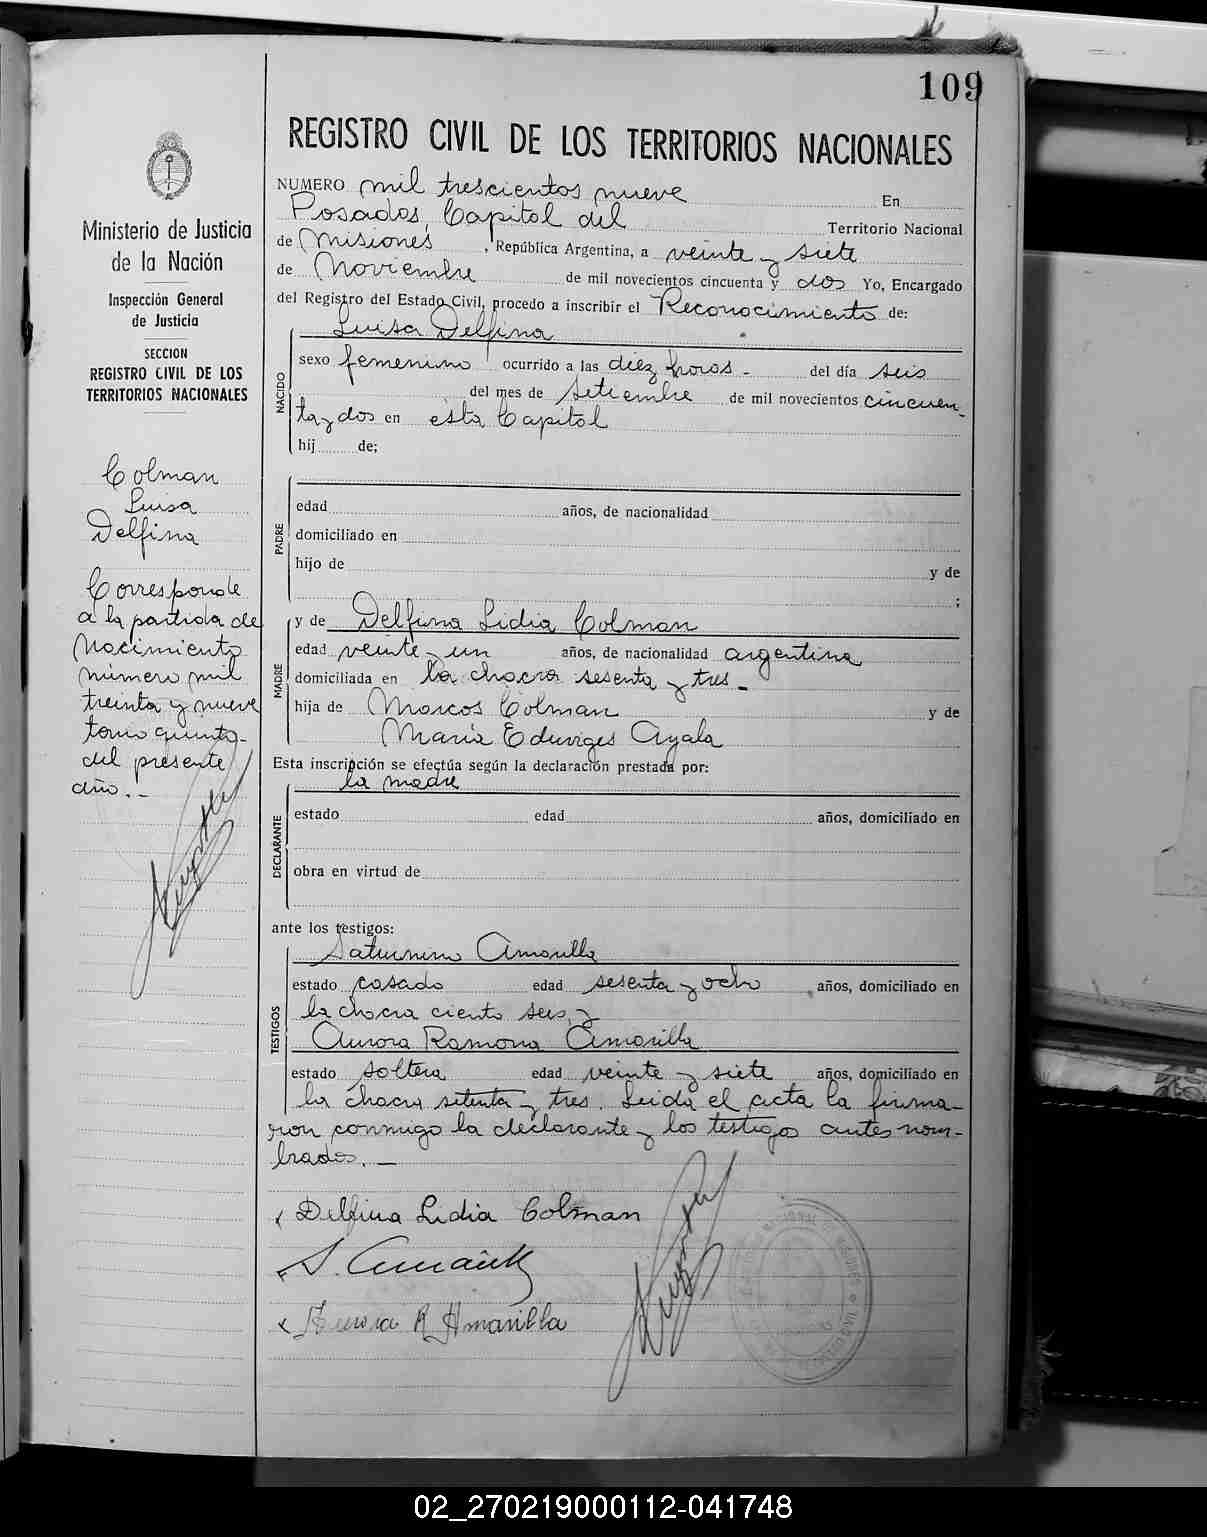 109
REGISTRO CIVIL DE LOS TERRITORIOS NACIONALES
NUMERO mil trescientos nueve En
Posadas, Capital del Territorio Nacional
de Misiones, República Argentina, a veinte y siete
de Noviembre de mil novecientos cincuenta y dos Yo, Encargado
del Registro del Estado Civil, procedo a inscribir el Reconocimiento de:
Luisa Delfina
NACIDO
sexo femenino ocurrido a las diez horas - del día seis
del mes de setiembre de mil novecientos cincuen-
ta y dos en esta Capital
hij de;
PADRE
edad años, de nacionalidad
domiciliado en
hijo de y de
;
MADRE
y de Delfina Lidia Colman
edad veinte y un años, de nacionalidad argentina
domiciliada en la chacra sesenta y tres -
hija de Marcos Colman y de
María Eduviges Ayala
Esta inscripción se efectúa según la declaración prestada por:
la madre
DECLARANTE
estado edad años, domiciliado en
obra en virtud de
ante los testigos:
TESTIGOS
Saturnino Amarilla
estado casado edad sesenta y ocho años, domiciliado en
la chacra ciento seis, y
Aurora Ramona Amarilla
estado soltera edad veinte y siete años, domiciliado en
la chacra setenta y tres. Leida el acta la firma-
ron conmigo la declarante y los testigos antes nom-
brados. -
Delfina Lidia Colman
Aurora R Amarilla
Ministerio de Justicia
de la Nación
Inspección General
de Justicia
SECCION
REGISTRO CIVIL DE LOS
TERRITORIOS NACIONALES
Colman
Luisa
Delfina
Corresponde
a la partida de
Nacimiento
número mil
treinta y nueve
tomo quinto -
del presente
año. -
02_270219000112-041748